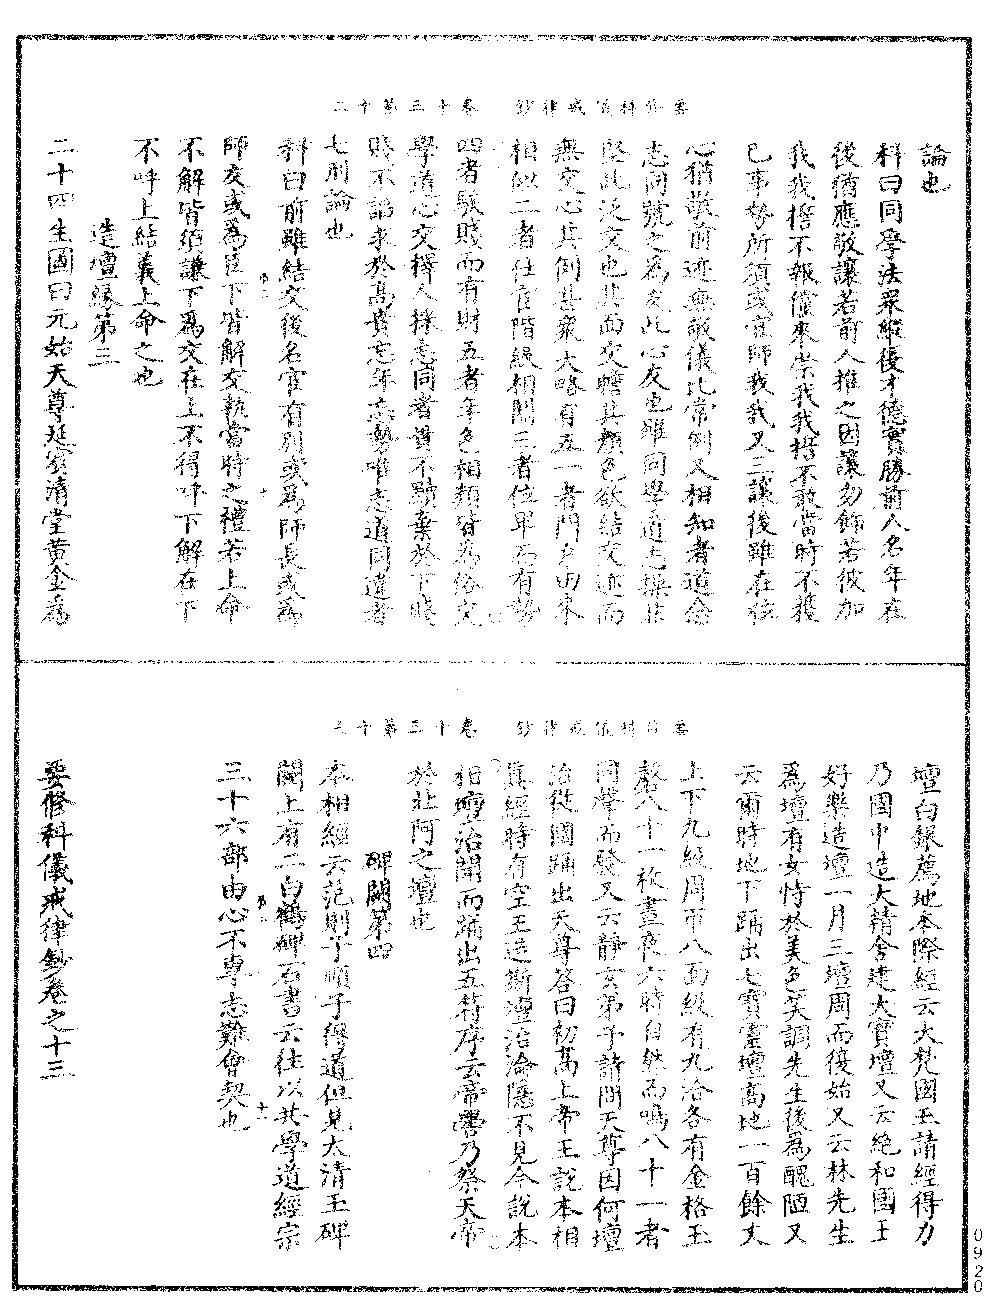 要修科儀戒律鈔 卷十三第十二
論也
科曰同學法衆縱後才德實勝前人名年在
後猶應敬讓若前人推之因讓勿飾若彼加
我我擔不報儻來崇我我擔不敢當時不獲
已事勢所須或官師我我又三讓後雖在位
心猶敬前迹無敬儀比常例又相知者道念
志同號之爲友此心友也雖同學道士操非
堅此泛交也其面交瞻其顏色欲結友迹而
無交心其例甚衆大略有五一者門戶由來
相似二者仕官階級相關三者位卑而有勢
四者賤而有財五者年色相類皆爲俗交
學道心交擇人採志同者貴不黜棄於下賤
賤不諂求於高貴忘年忘勢唯志道同違者
七刑論也
科曰前雖結交後名官有別或爲師長或爲
師友或爲臣下皆解交執當時之禮若上命
不解皆須謙下爲交在上不得呼下解在下
不呼上結義上命之也
造壇緣第三
二十四生圖曰元始天尊延賓清堂黃金爲
要修科儀戒律鈔 卷十三第十三
壇白銀薦地本際經云大梵國王請經得力
乃國中造大精舍建大寶壇又云絕和國王
好樂造壇一月三壇周而復始又云林先生
爲壇有女恃於美色笑調先生後爲醜陋又
云爾時地下踊出七寶靈壇高地一百餘丈
上下九級周帀八面級有九洽各有金格玉
磬八十一枚晝夜六時自然而鳴八十一者
同聲而發又云靜玄弟子請問天尊因何壇
治從國踊出天尊答曰初萬上帝王說本相
眞經時有空王造斯壇治淪隱不見今說本
相壇治聞而踊出五符序云帝嚳乃祭天帝
於北阿之壇也
碑闕第四
本相經云范則于順子得道但見太清玉碑
闕上有二白鶴碑石書云往以共學道經宗
三十六部由心不專志難會契也
要修科儀戒律鈔卷之十三
0920